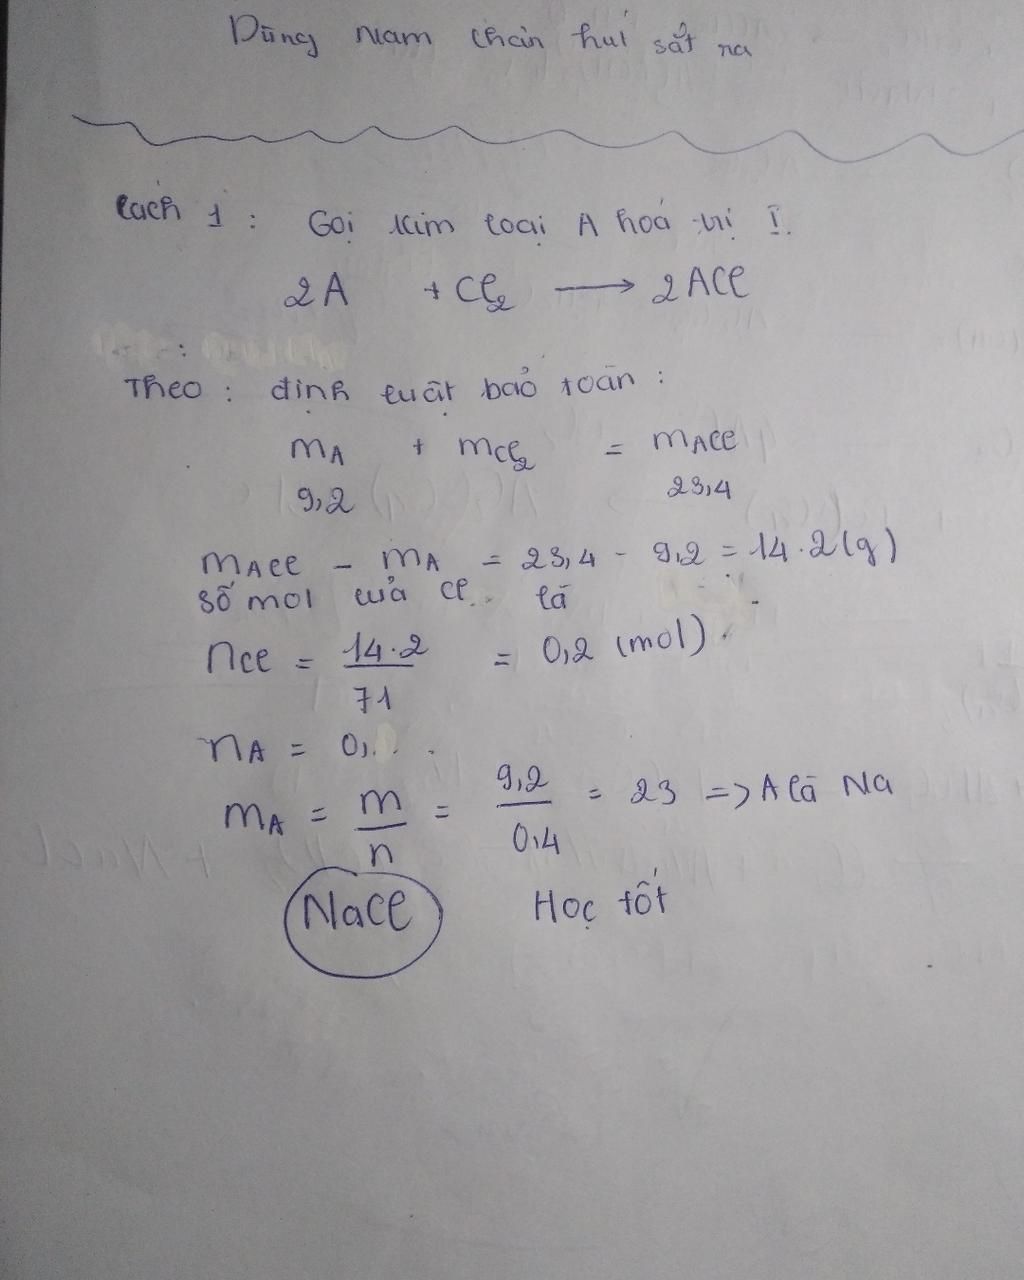 Dùng nam châm hút sắt ra
Cách 1 : Gọi kim loại A hoá trị I.
2A + Cl₂ → 2ACl
Theo : định luật bảo toàn :
mA + mCl₂ = mACl
9,2 23,4
mACl - mA = 23,4 - 9,2 = 14.2 (g)
số mol của Cl là
nCl = 14.2/71 = 0,2 (mol)
nA = 0,
mA = m/n = 9,2/0,4 = 23 => A là Na
NaCl Học tốt